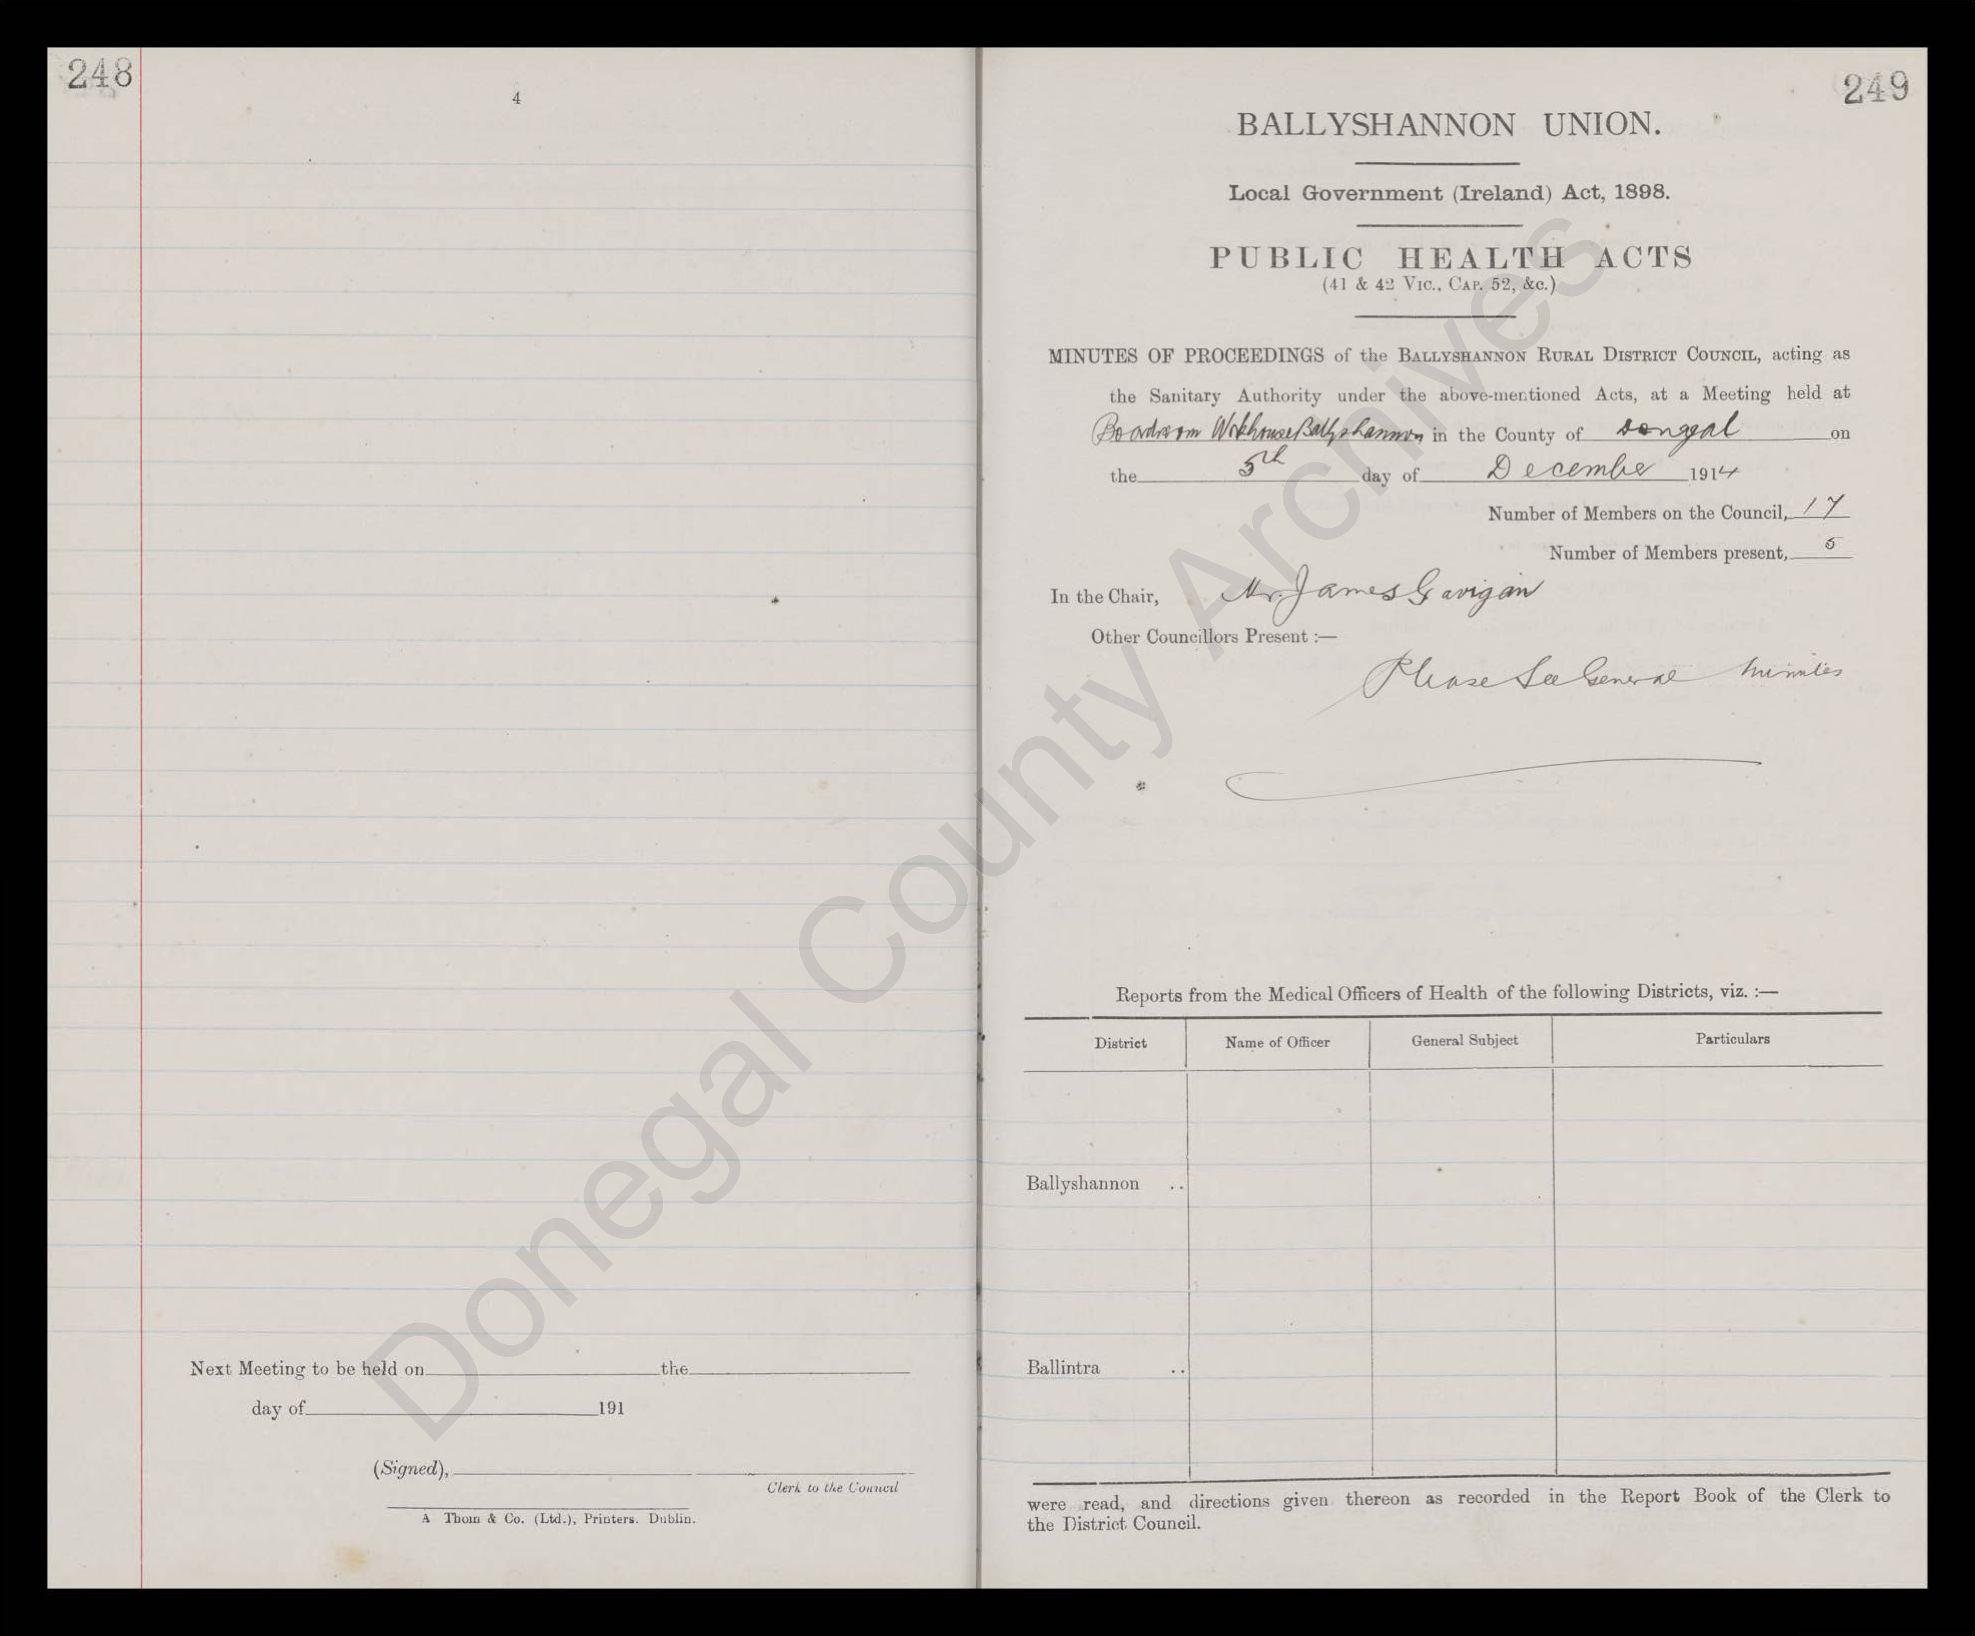 248
4
Next Meeting to be held on the
day of 191
(Signed),
Clerk to the Council
A Thom & Co. (Ltd.), Printers. Dublin.
249
BALLYSHANNON UNION.
Local Government (Ireland) Act, 1898.
PUBLIC HEALTH ACTS
(41 & 42 VIC., CAP. 52, &c.)
MINUTES OF PROCEEDINGS of the BALLYSHANNON RURAL DISTRICT COUNCIL, acting as
the Sanitary Authority under the above-mentioned Acts, at a Meeting held at
Boardroom Workhouse Ballyshannon in the County of Donegal on
the 5th day of December 1914
Number of Members on the Council, 17
Number of Members present, 5
In the Chair, Mr. James Gavigan
Other Councillors Present :—
Please See General Minutes
Reports from the Medical Officers of Health of the following Districts, viz. :—
District Name of Officer General Subject Particulars
Ballyshannon ..
Ballintra ..
were read, and directions given thereon as recorded in the Report Book of the Clerk to
the District Council.
Donegal County Archives